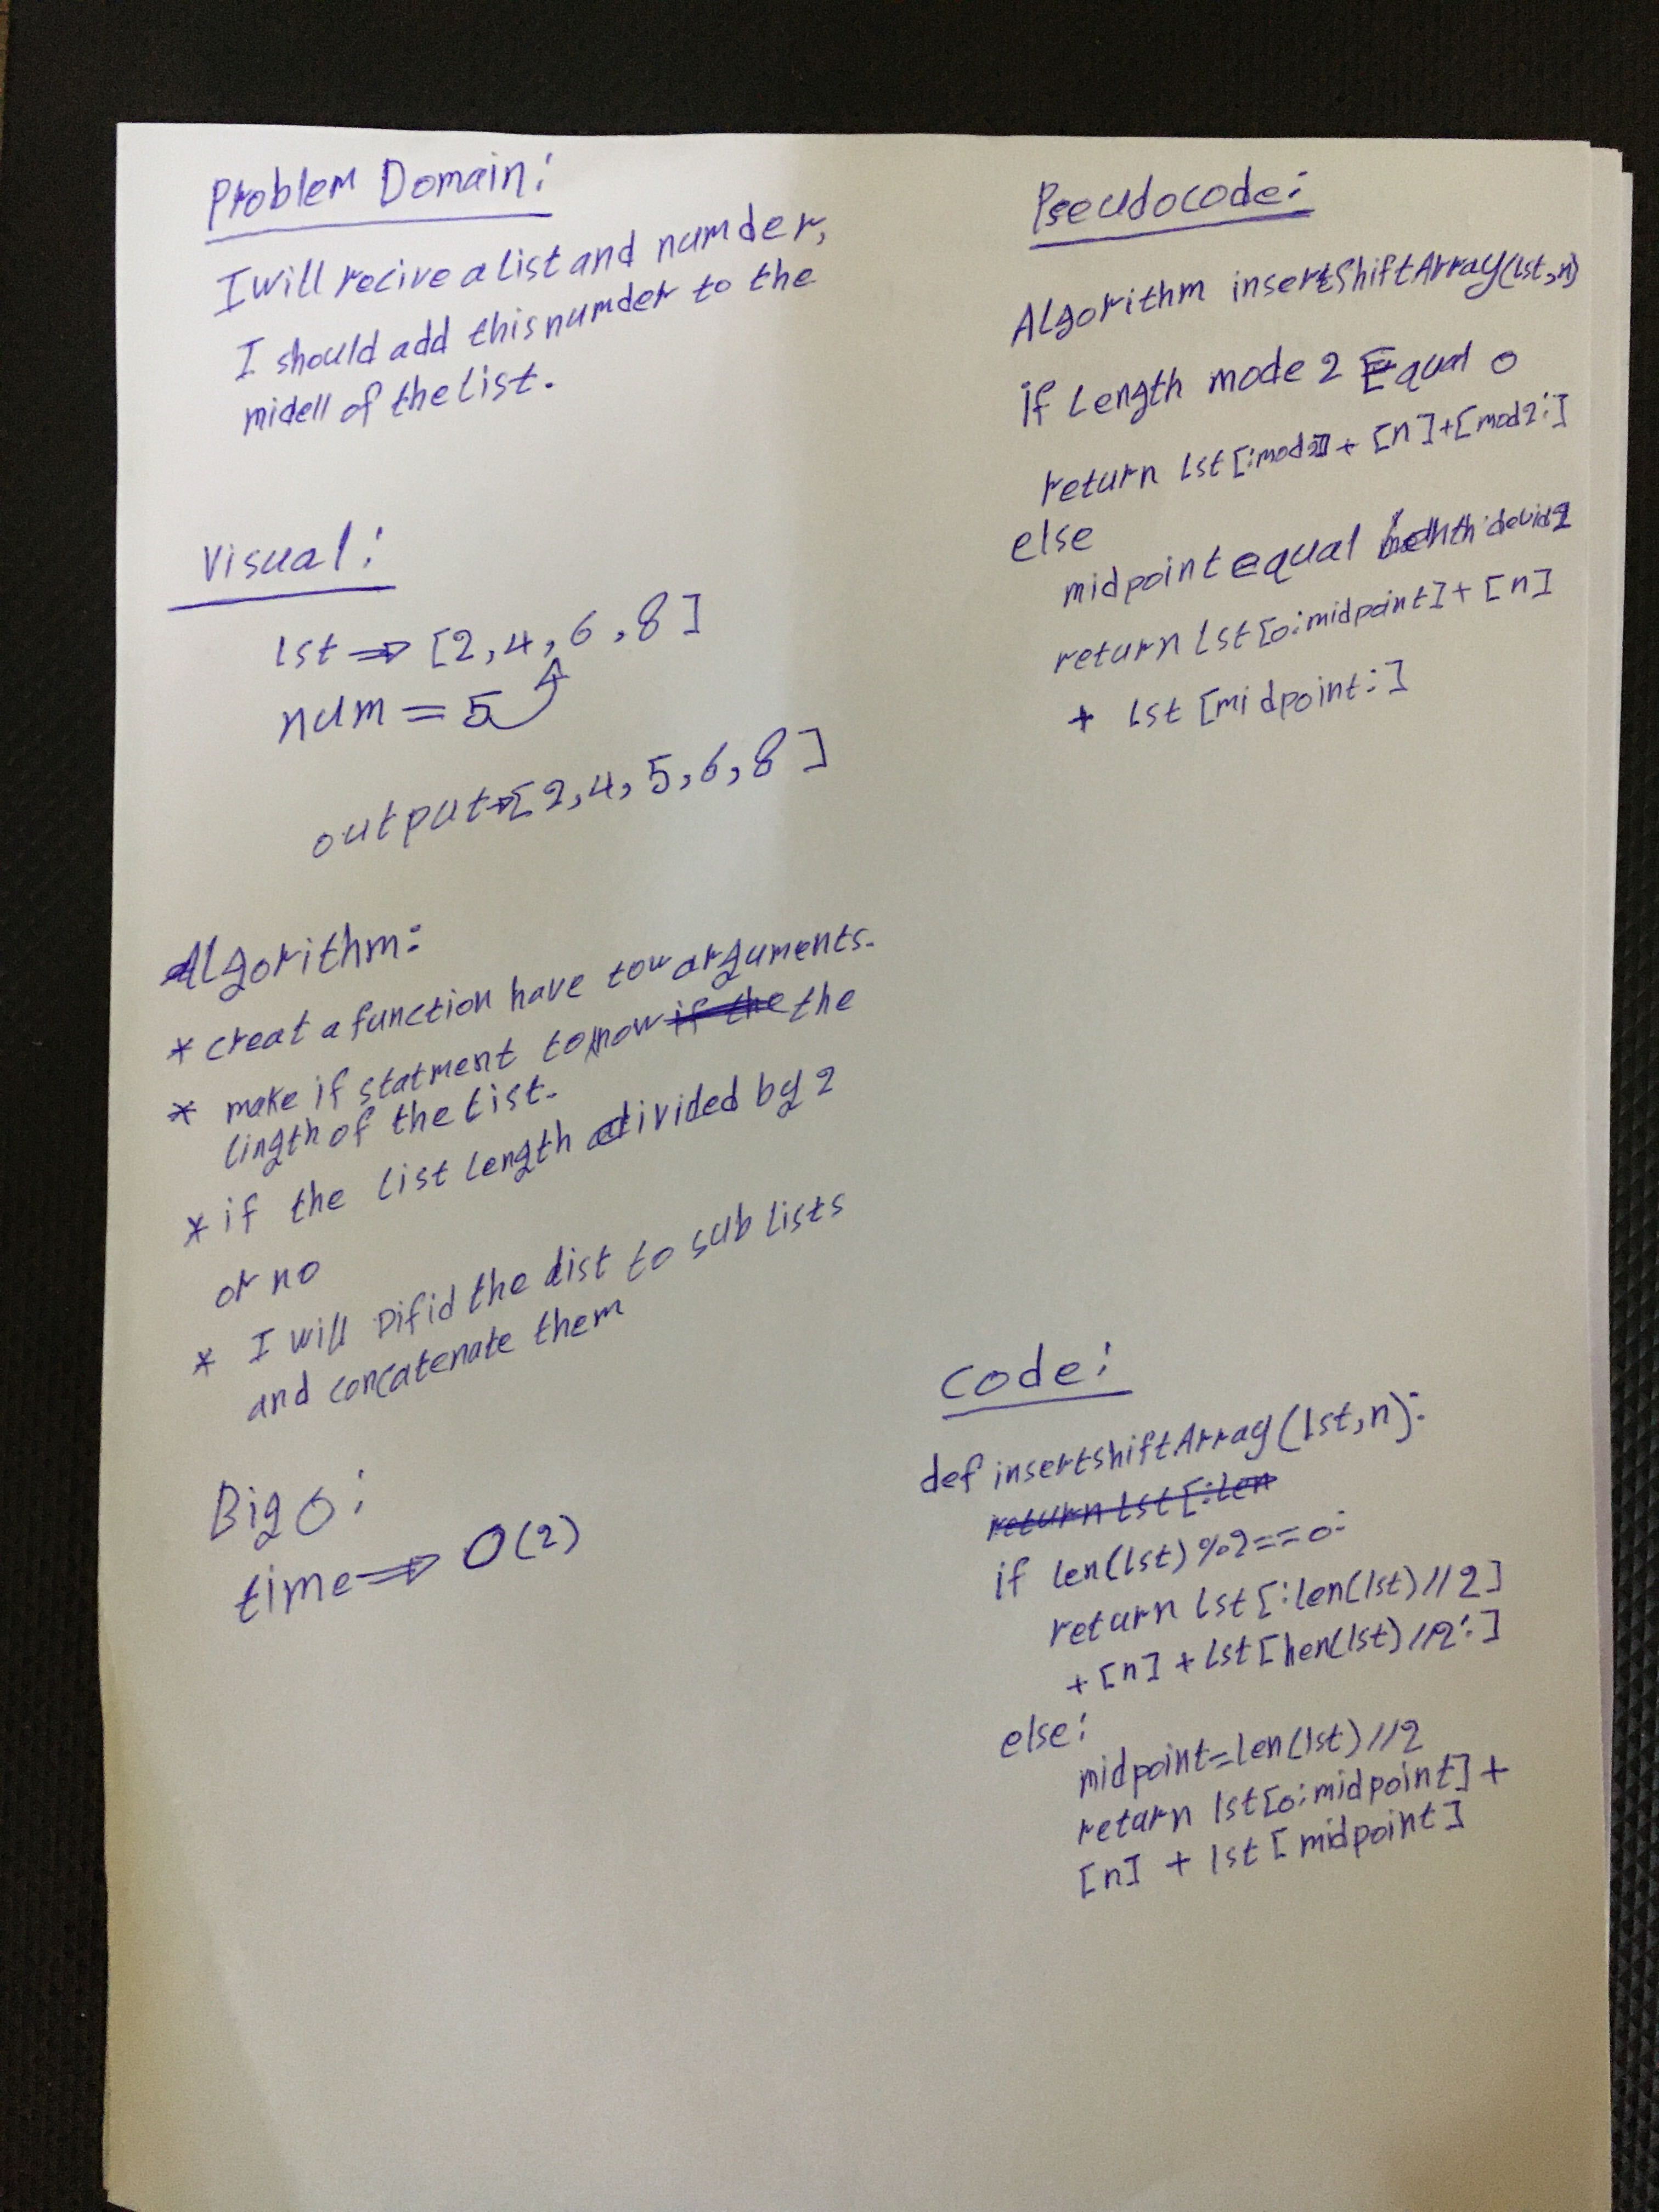 Problem Domain:
I will recive a list and numder,
I should add this numder to the
midell of the list.
Visual:
lst ⇒ [2,4,6,8]
num = 5
output⇒[2,4,5,6,8]
Algorithm:
* creat a function have tow arguments.
* make if statment to know if the the
lingth of the list.
* if the list length divided by 2
or no
* I will Difid the list to sub lists
and concatenate them
Big O:
time ⇒ O(2)
Pseudocode:
Algorithm insertShiftArray(lst,n)
if Length mode 2 Equal 0
return lst[:mod2] + [n]+[mod2:]
else
midpoint equal
return lst[0:midpoint]+[n]
+ lst [midpoint:]
Code:
def insertshiftArray(lst,n):
return lst[:len
if len(lst)%2==0:
return lst[:len(lst)//2]
+[n]+lst[len(lst)//2:]
else:
midpoint=len(lst)//2
return lst[0:midpoint]+
[n] + lst[midpoint]